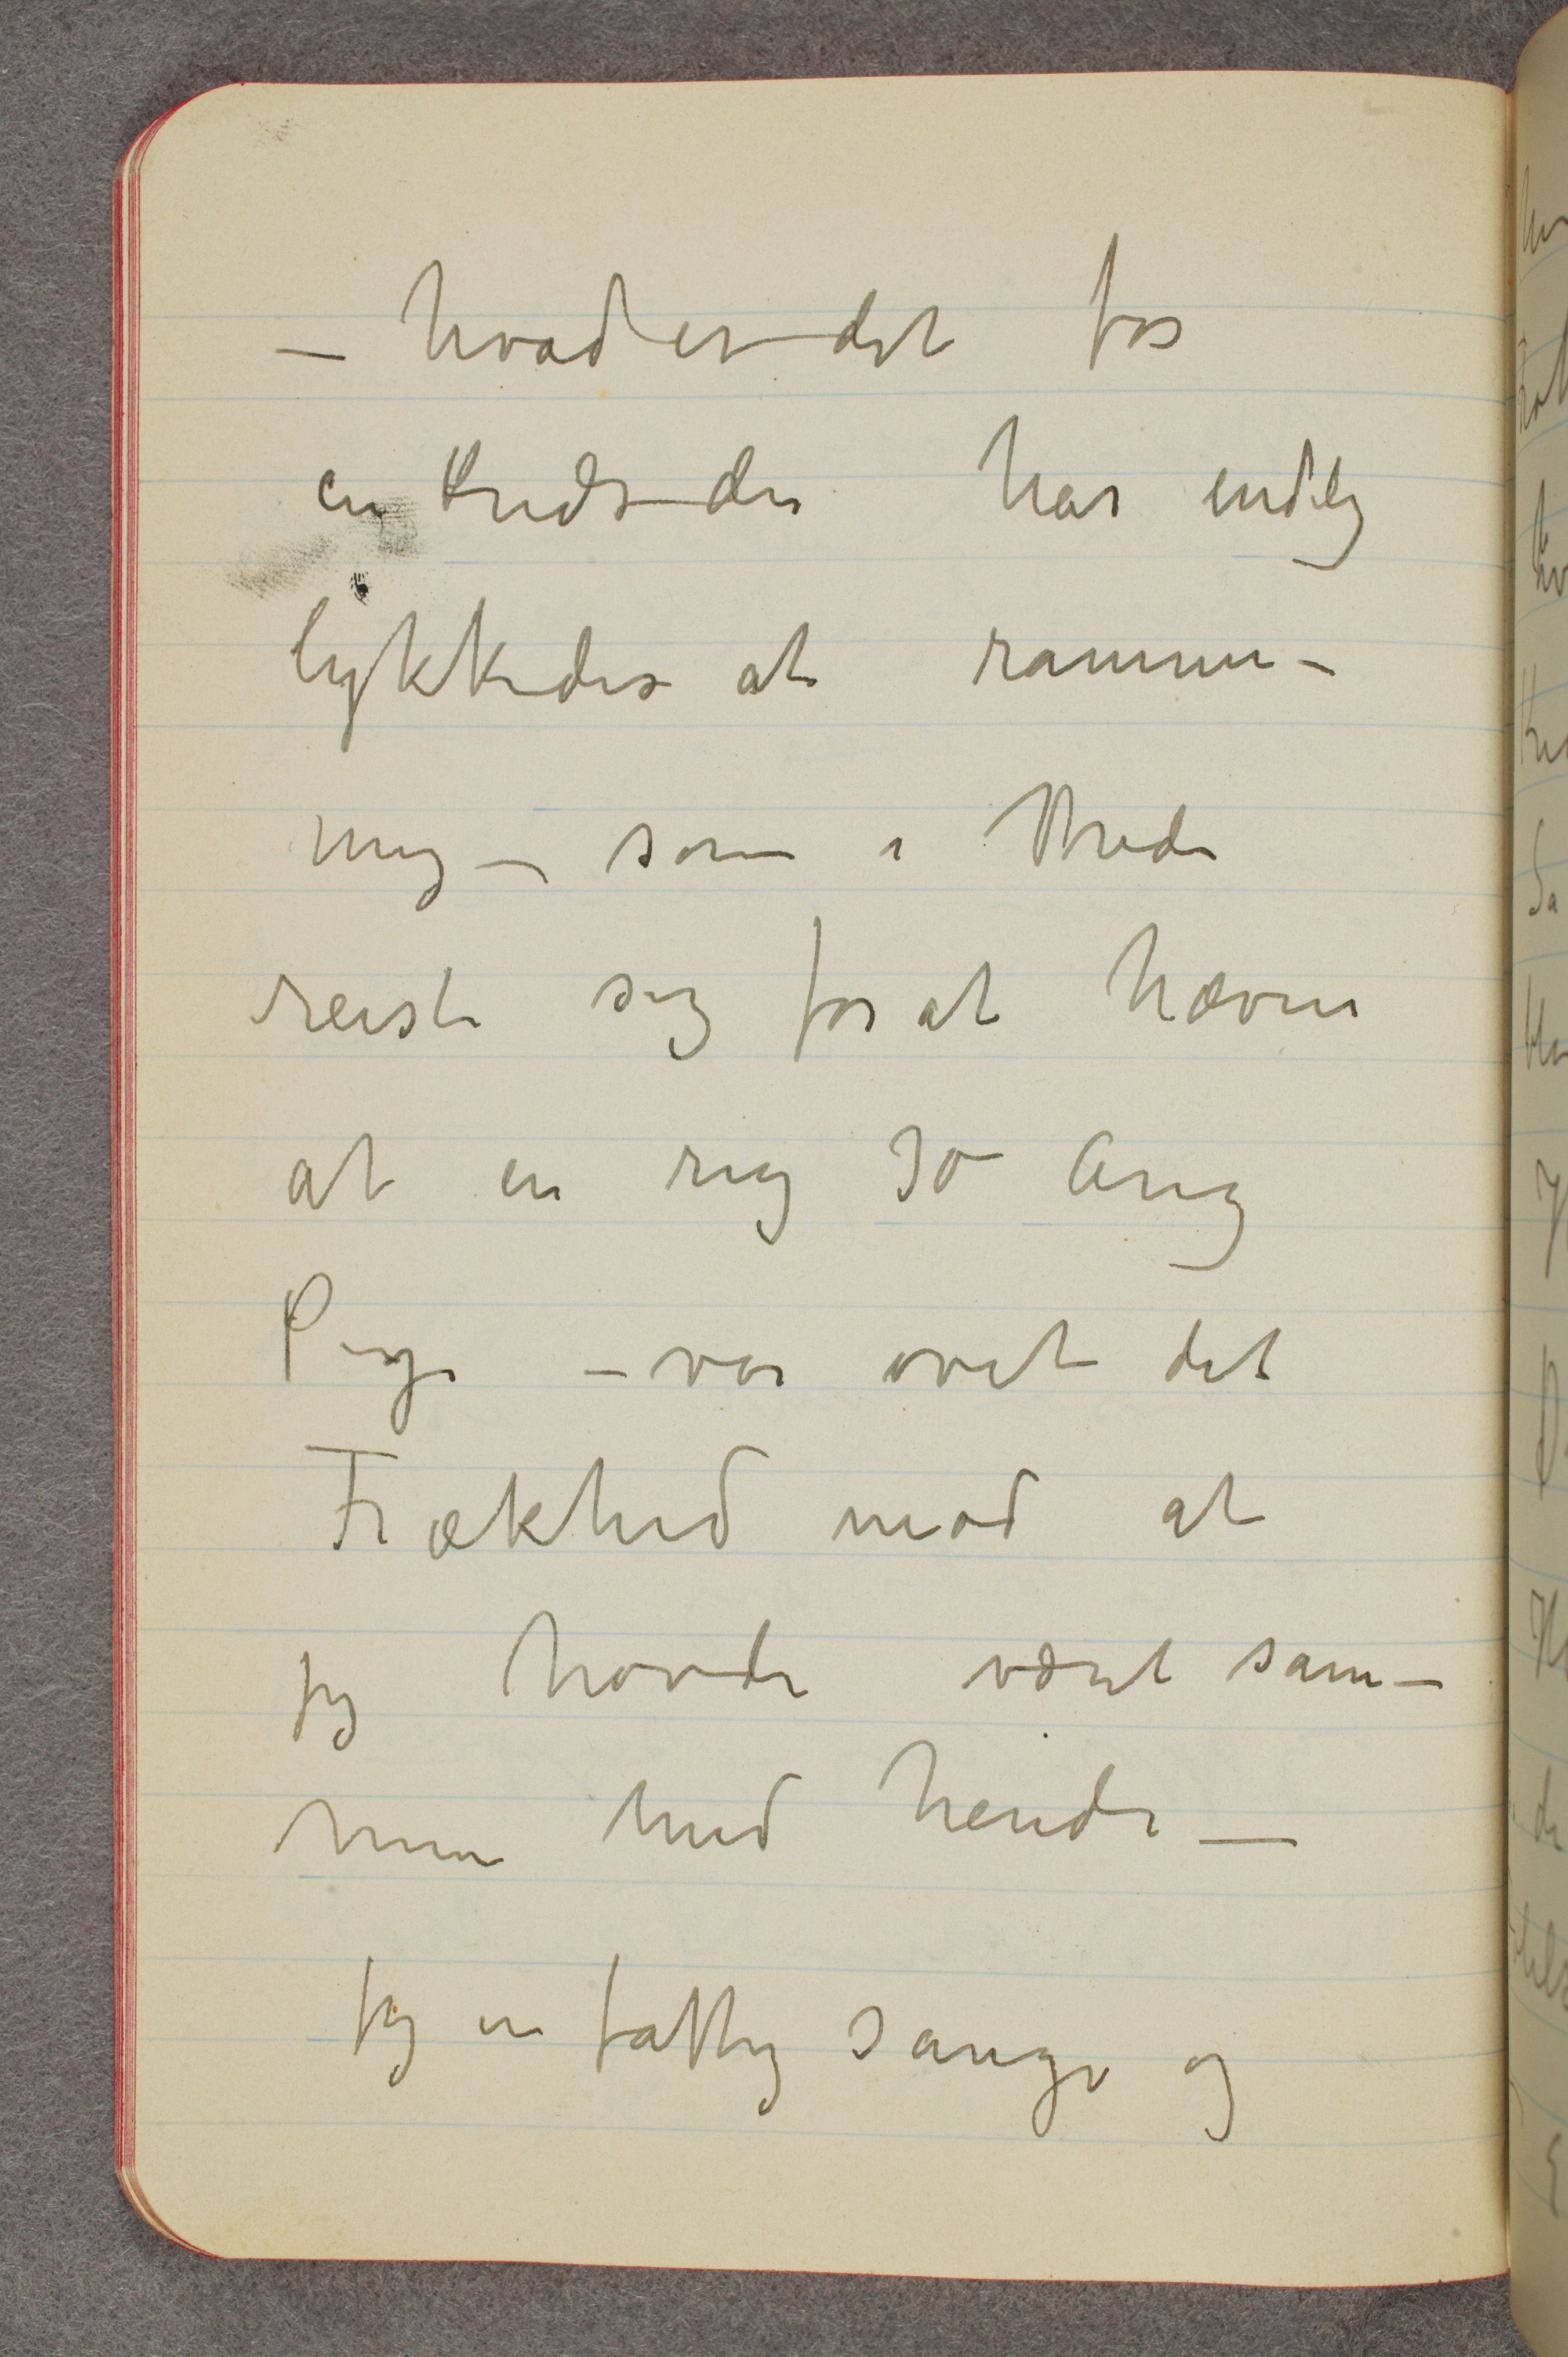 – hvad er det for
en Kreds der har endelig
lykkedes at ramme –
mig – som i Vrede
reiste sig for at hævne
at en rig 30 årig
Pige – var øvet det
Frækhed mod at
jeg havde været sam–
men med hende –
Jeg en fattig Sanger og